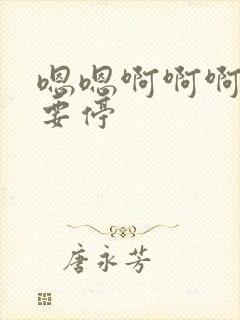 嗯嗯啊啊啊
要停
唐永芳